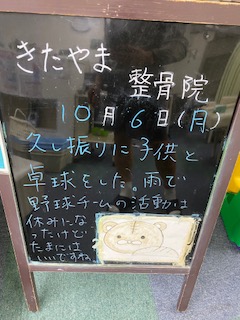 きたやま
整骨院
10月6日(月)
久し振りに子供と
卓球をした。雨で
野球チームの活動は
休みにな
ったけど
たまには
いいですね